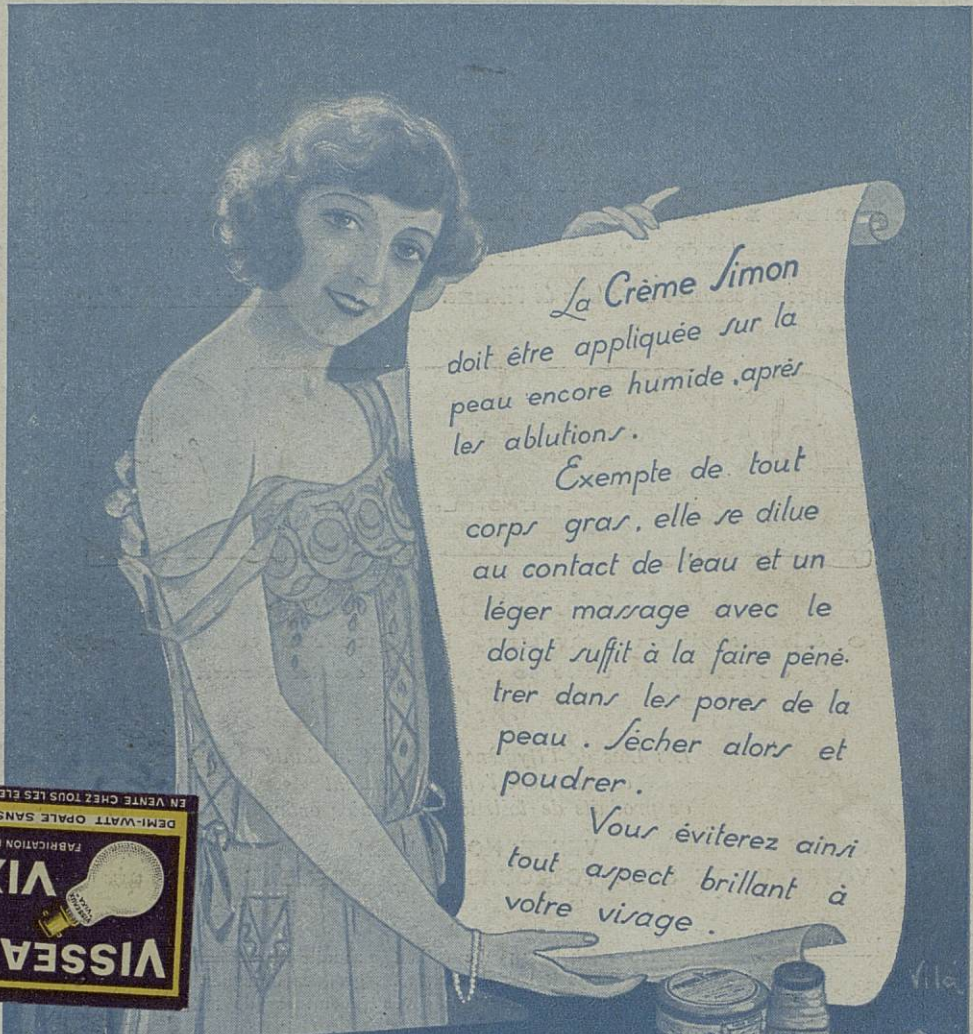 La Crème Simon
doit être appliquée sur la
peau encore humide, après
les ablutions.
Exempte de tout
corps gras, elle se dilue
au contact de l'eau et un
léger massage avec le
doigt suffit à la faire péné-
trer dans les pores de la
peau. Sécher alors et
poudrer.
Vous éviterez ainsi
tout aspect brillant à
votre visage.
Vila
EN VENTE CHEZ TOUS LES
DEMI-WATT OPALE SANS
FABRICATION